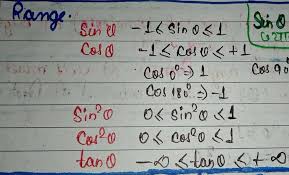 Range.
Sinθ -1 ≤ Sinθ ≤ 1
Cosθ -1 ≤ Cosθ ≤ +1
Cos 0° ⇒ 1
Cos 180° ⇒ -1
Sin²θ 0 ≤ Sin²θ ≤ 1
Cos²θ 0 ≤ Cos²θ ≤ 1
tanθ -∞ ≤ tanθ ≤ +∞
Sinθ
Cos 90